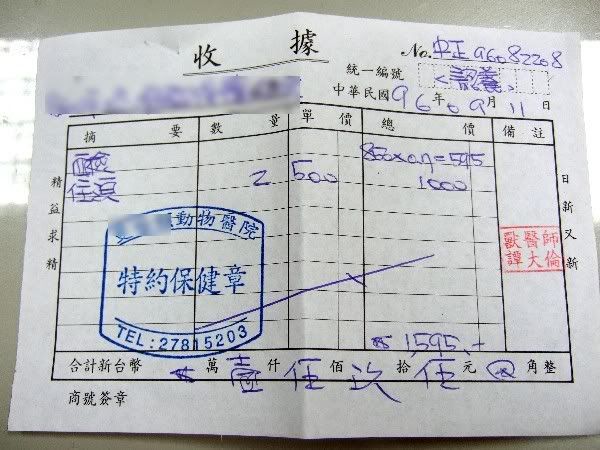 收 據
No. 中正 96082208
統一編號 <認養>
中華民國 96 年 09 月 11 日
摘 要 數 量 單 價 總 價 備 註
850×0.7=595
住院 2 500 1000
精益求精
日新又新
動物醫院
特約保健章
TEL:27815203
獸醫師
譚大倫
1,595.-
合計新台幣 萬 壹 仟 伍 佰 玖 拾 伍 元 角整
商號簽章